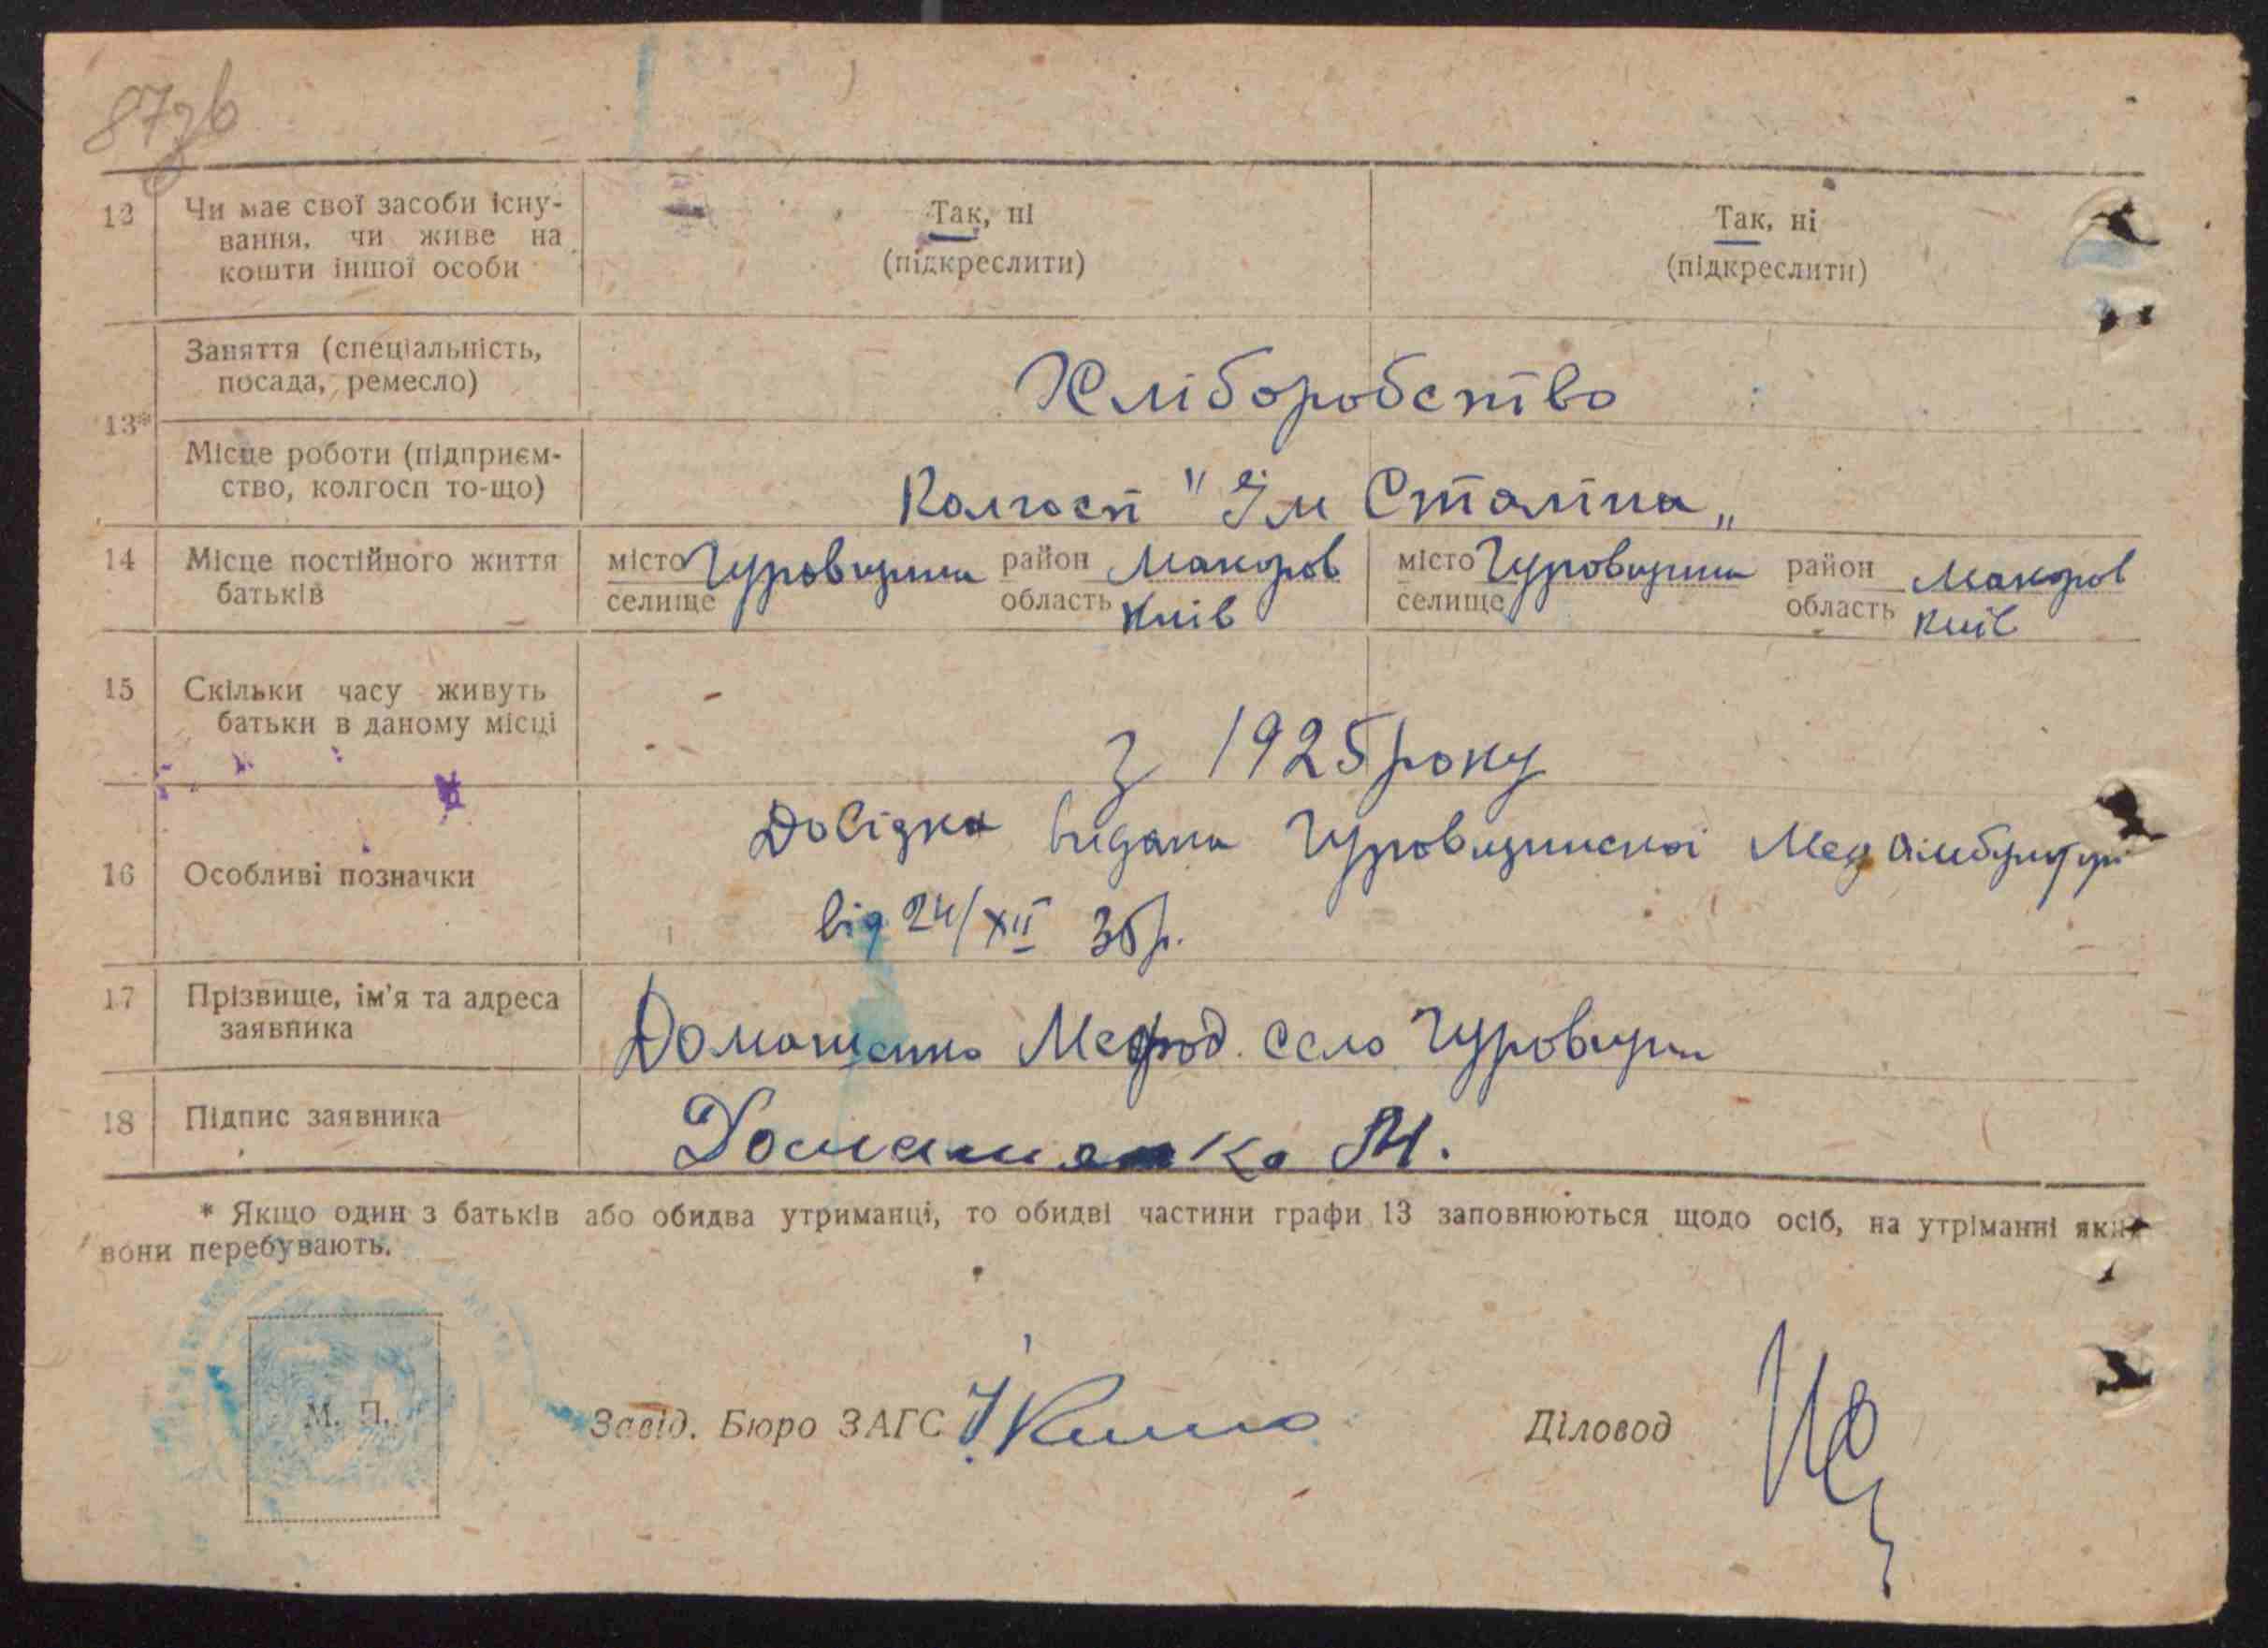 87зв
12 Чи має свої засоби існу-
вання, чи живе на
кошти іншої особи
Так, ні
(підкреслити)
Так, ні
(підкреслити)
13*
Заняття (спеціальність,
посада, ремесло)
Хліборобство
Місце роботи (підприєм-
ство, колгосп то-що)
Колгосп "Ім Сталіна„
14 Місце постійного життя
батьків
місто Гуровщина район Макаров
селище область Київ
місто Гуровщина район Макаров
селище область Київ
15 Скільки часу живуть
батьки в даному місці
З 1925 року
16 Особливі позначки
Довідка видана Гуровщинскої Мед Амбулаторі
від 24/XII 35 р.
17 Прізвище, ім'я та адреса
заявника
Домашенко Мефод. село Гуровщина
18 Підпис заявника
Домашенко М.
* Якщо один з батьків або обидва утриманці, то обидві частини графи 13 заповнюються щодо осіб, на утріманні яких
вони перебувають.
М. П.
Завід. Бюро ЗАГС
Діловод